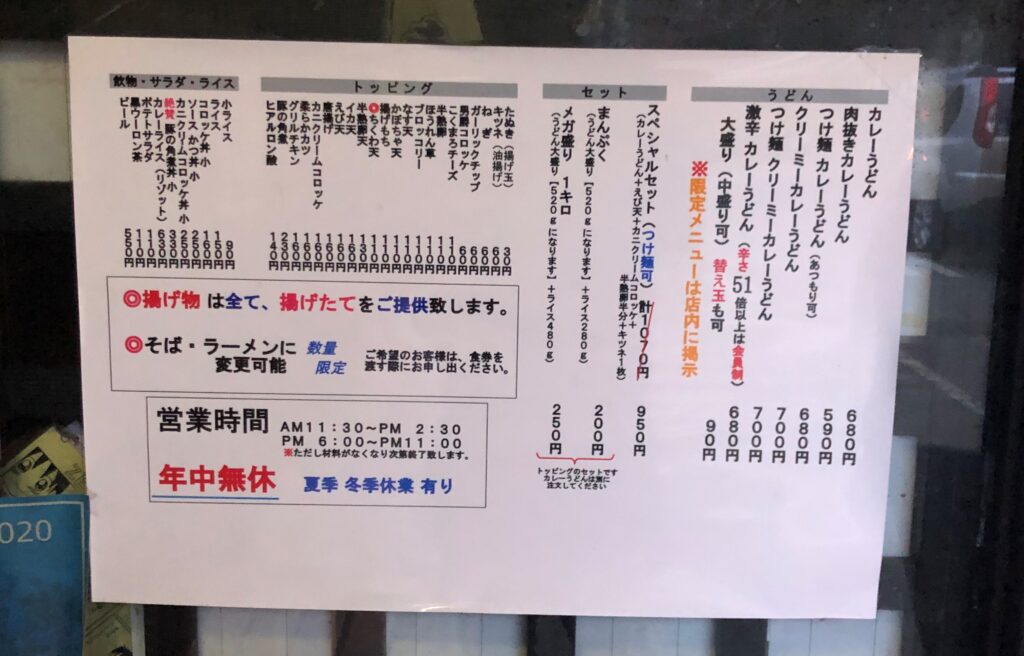 うどん
カレーうどん 680円
肉抜きカレーうどん 590円
つけ麺 カレーうどん（あつもり可） 680円
クリーミーカレーうどん 700円
つけ麺 クリーミーカレーうどん 700円
激辛 カレーうどん（辛さ51倍以上は会員制） 680円
大盛り（中盛り可）替え玉も可 90円
※限定メニューは店内に掲示
セット
スペシャルセット（つけ麺可）計1070円 950円
（カレーうどん＋えび天＋カニクリームコロッケ＋
半熟卵半分＋キツネ1枚）
まんぷく 200円
（うどん大盛り［520gになります］＋ライス280g）
メガ盛り 1キロ 250円
（うどん大盛り［520gになります］＋ライス480g）
トッピングのセットです
カレーうどんは別に
注文してください
トッピング
たぬき（揚げ玉） 30円
キツネ（油揚げ） 60円
ねぎ 60円
ガーリックチップ 60円
男爵コロッケ
こくまろチーズ
半熟卵
ほうれん草
ブロッコリー
なす天
かぼちゃ天
揚げもち
◎ちくわ天
半熟卵天
イカ天
えび天
唐揚げ
カニクリームコロッケ
柔らかカツ
グリルチキン
豚の角煮 230円
ヒアルロン酸 140円
飲物・サラダ・ライス
小ライス 90円
ライス 150円
コロッケ丼 小
ソースかつ丼 小 250円
カニクリームコロッケ丼 小 250円
絶賛 豚の角煮丼 小 330円
カレーライス（リゾット） 630円
ポテトサラダ 110円
黒ウーロン茶
ビール 550円
◎揚げ物 は全て、揚げたてをご提供致します。
◎そば・ラーメンに 変更可能
数量 限定
ご希望のお客様は、食券を
渡す際にお申し出ください。
営業時間
AM11:30～PM 2:30
PM 6:00～PM11:00
※ただし材料がなくなり次第終了致します。
年中無休 夏季 冬季休業 有り
020